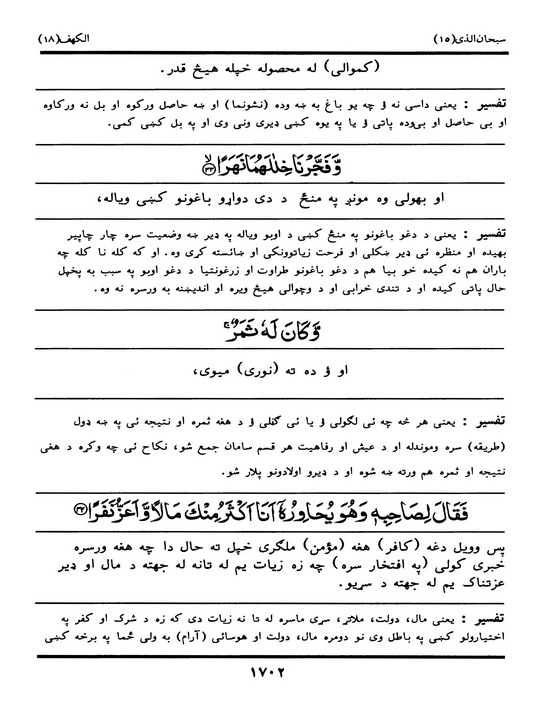 سبحان‌الذی(۱۵)
الکهف(۱۸)
(کموالی) له محصوله خپله هیڅ قدر.
تفسیر : یعنی داسی نه ؤ چه یو باغ به ښه وده (نشونما) او ښه حاصل ورکوه او بل نه ورکاوه
او بی حاصل او بی‌وده پاتی ؤ یا په یوه کښی ډیری ونی وی او په بل کښی کمی.
وَّفَجَّرْنَا خِلٰلَهُمَا نَهَرًا ﴿۳۳﴾
او بهولی وه مونږ په منځ د دی دواړو باغونو کښی ویاله،
تفسیر : یعنی د دغو باغونو په منځ کښی د اوبو ویاله په ډیر ښه وضعیت سره چار چاپیر
بهیده او منظره ئی ډیر ښکلی او فرحت زیاتوونکی او ښائسته کری وه. او که کله نا کله چه
باران هم نه کیده خو بیا هم د دغو باغونو طراوت او زرغونتیا د دغو اوبو په سبب به پخپل
حال پاتی کیده او د تندی خرابی او د وچوالی هیڅ ویره او اندیښنه به ورسره نه وه.
وَّكَانَ لَهٗ ثَمَرٌ
او ؤ ده ته (نوری) میوی،
تفسیر : یعنی هر څه چه ئی لگولی ؤ یا ئی گټلی ؤ د هغه ثمره او نتیجه ئی په ښه ډول
(طریقه) سره وموندله او د عیش او رفاهیت هر قسم سامان جمع شو، نکاح ئی چه وکړه د هغی
نتیجه او ثمره هم ورته ښه شوه او د ډیرو اولادونو پلار شو.
فَقَالَ لِصَاحِبِهٖ وَهُوَ يُحَاوِرُهٗٓ اَنَا اَكْثَرُ مِنْكَ مَالًا وَّاَعَزُّ نَفَرًا ﴿۳۴﴾
پس وویل دغه (کافر) هغه (مؤمن) ملگری خپل ته حال دا چه هغه ورسره
خبری کولی (په افتخار سره) چه زه زیات یم له تانه له جهته د مال او ډیر
عزتناک یم له جهته د سړیو.
تفسیر : یعنی مال، دولت، ملاتړ، سړی ماسره له تا نه زیات دی که زه د شرک او کفر په
اختیارولو کښی په باطل وی نو دومره مال، دولت او هوسائی (آرام) به ولی ځما په برخه کښی
۱۷۰۲